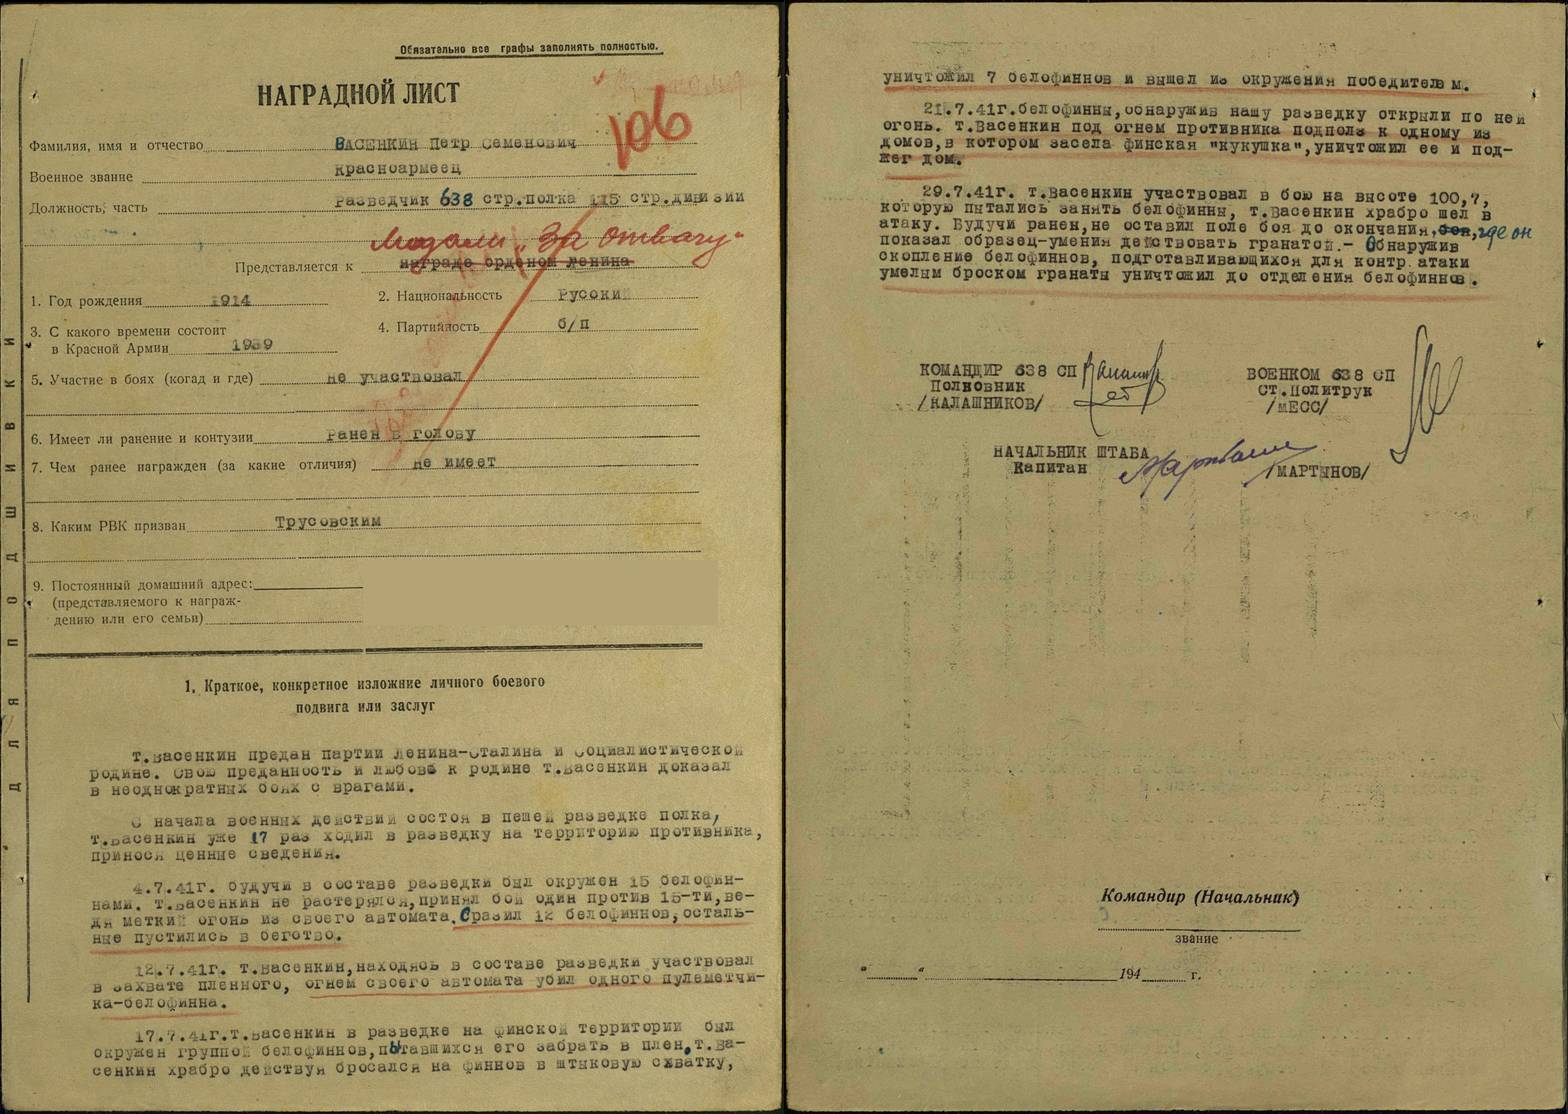 Обязательно все графы заполнять полностью.
НАГРАДНОЙ ЛИСТ
106
Фамилия, имя и отчество ВАСЕНКИН Петр Семенович
Военное звание красноармеец
Должность, часть разведчик 638 стр.полка 115 стр.дивизии
Медали „За отвагу"
Представляется к награде орденом Ленина
1. Год рождения 1914
2. Национальность Русский
3. С какого времени состоит
в Красной Армии 1939
4. Партийность б/п
5. Участие в боях (когад и где) не участвовал
6. Имеет ли ранение и контузии ранен в голову
7. Чем ранее награжден (за какие отличия) не имеет
8. Каким РВК призван Трусовским
9. Постоянный домашний адрес:
(представляемого к награж-
дению или его семьи)
ДЛЯ ПОДШИВКИ
1. Краткое, конкретное изложние личного боевого
подвига или заслуг
т.Васенкин предан партии Ленина-Сталина и Социалистической
родине. Свою преданность и любовь к родине т.Васенкин доказал
в неоднократных боях с врагами.
С начала военных действий состоя в пешей разведке полка,
т.Васенкин уже 17 раз ходил в разведку на территорию противника,
принося ценные сведения.
4.7.41г. будучи в составе разведки был окружен 15 белофин-
нами. т.Васенкин не растерялся,принял бой один против 15-ти,ве-
дя меткий огонь из своего автомата. Сразил 12 белофиннов,осталь-
ные пустились в бегство.
12.7.41г. т.Васенкин,находясь в составе разведки участвовал
в захвате пленного, огнем своего автомата убил одного пулеметчи-
ка-белофинна.
17.7.41г.т.Васенкин в разведке на финской территории был
окружен группой белофиннов,пытавшихся его забрать в плен,т.Ва-
сенкин храбро действуя бросался на финнов в штыковую схватку,
уничтожил 7 белофиннов и вышел из окружения победителем.
21.7.41г.белофинны,обнаружив нашу разведку открыли по ней
огонь. т.Васенкин под огнем противника подполз к одному из
домов,в котором засела финская "кукушка",уничтожил ее и под-
жег дом.
29.7.41г. т.Васенкин участвовал в бою на высоте 100,7,
которую пытались занять белофинны, т.Васенкин храбро шел в
атаку. Будучи ранен,не оставил поле боя до окончания, где он
показал образец-умения действовать гранатой.- Обнаружив
скопление белофиннов, подготавливающихся для контр атаки
умелым броском гранаты уничтожил до отделения белофиннов.
КОМАНДИР 638 СП
Полковник
/КАЛАШНИКОВ/
ВОЕНКОМ 638 СП
Ст.Политрук
/МЕСС/
НАЧАЛЬНИК ШТАБА
Капитан
/МАРТЫНОВ/
Командир (Начальник)
звание
" " 194 г.